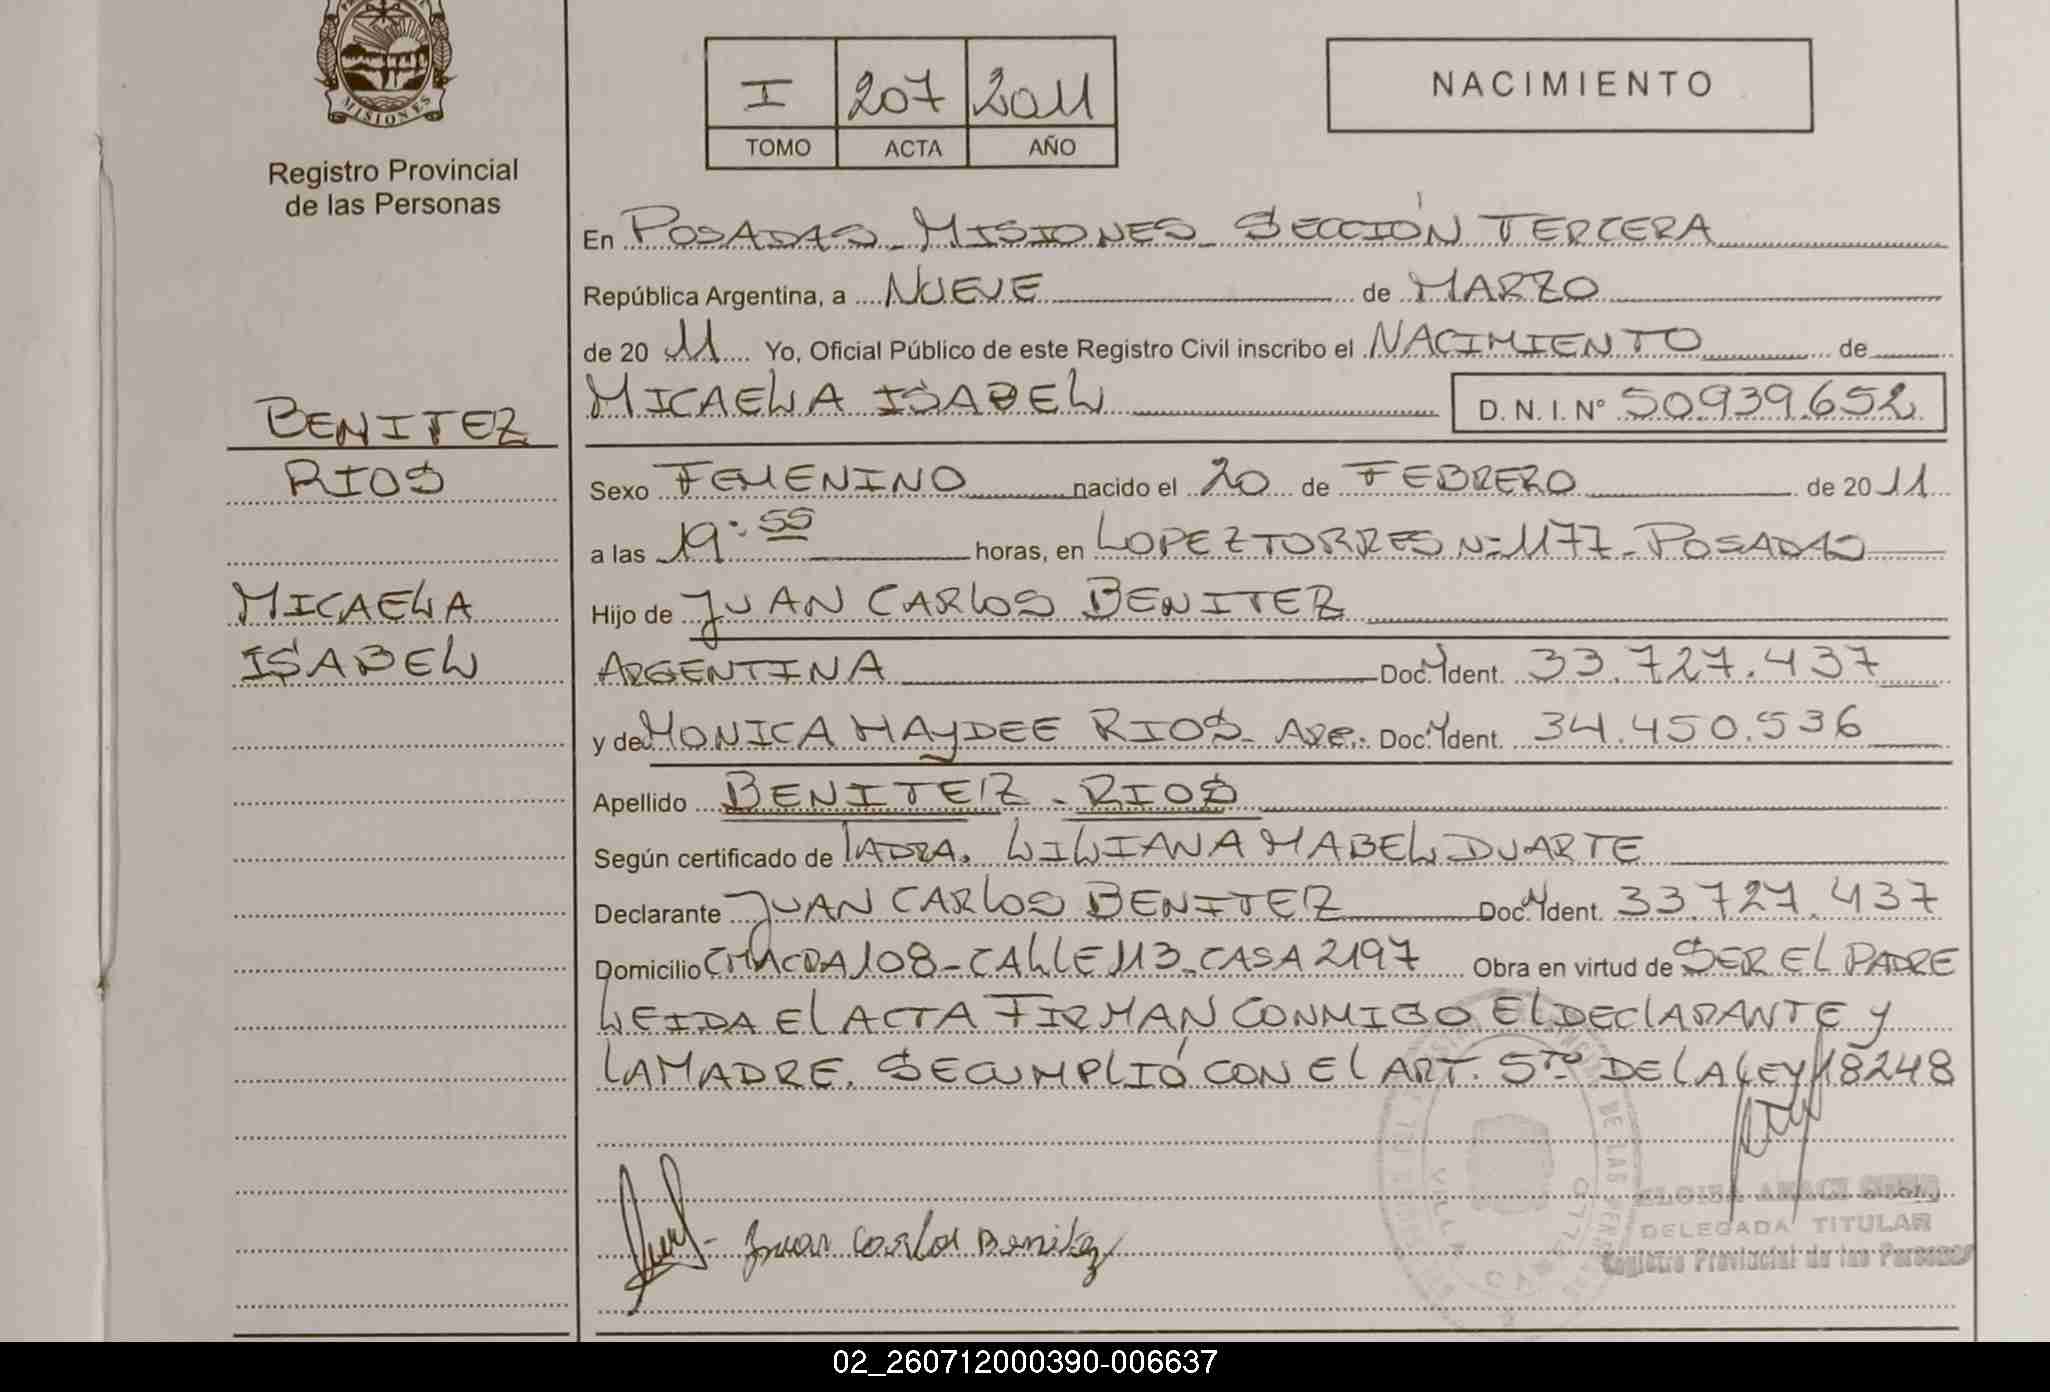 MISIONES
Registro Provincial
de las Personas
I 207 2011
TOMO ACTA AÑO
NACIMIENTO
En POSADAS - MISIONES - SECCIÓN TERCERA
República Argentina, a NUEVE de MARZO
de 2011 Yo, Oficial Público de este Registro Civil inscribo el NACIMIENTO de
MICAELA ISABEL D.N.I. Nº 50.939.652
BENITEZ
RIOS
MICAELA
ISABEL
Sexo FEMENINO nacido el 20 de FEBRERO de 2011
a las 19:55 horas, en LOPEZ TORRES Nº 1177 - POSADAS
Hijo de JUAN CARLOS BENITEZ
ARGENTINA Doc. Ident. 33.727.437
y de MONICA HAYDEE RIOS - ARG. Doc. Ident. 34.450.536
Apellido BENITEZ - RIOS
Según certificado de LA DRA. LILIANA MABEL DUARTE
Declarante JUAN CARLOS BENITEZ Doc. Ident. 33.727.437
Domicilio CHACRA 108 - CALLE 113 - CASA 2197 Obra en virtud de SER EL PADRE
LEIDA EL ACTA FIRMAN CONMIGO EL DECLARANTE Y
LA MADRE. SE CUMPLIÓ CON EL ART. 5TO DE LA LEY 18248
Juan Carlos Benitez
VILLA CABELLO
DELEGADA TITULAR
Registro Provincial de las Personas
02_260712000390-006637